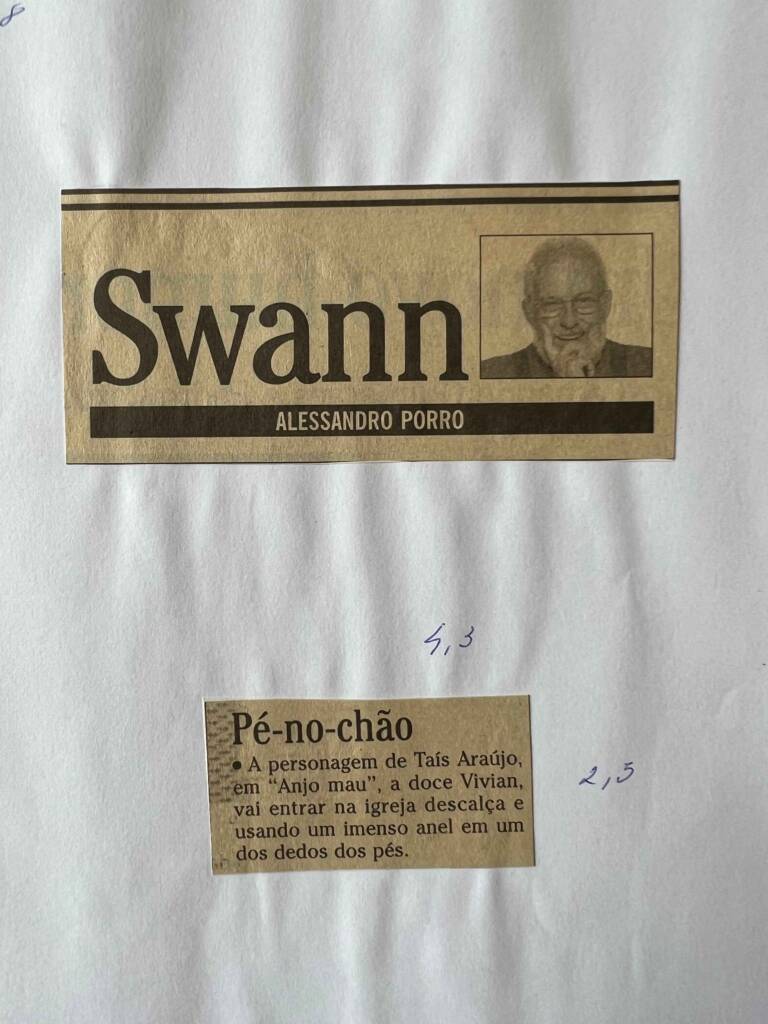 8
Swann
ALESSANDRO PORRO
4,3
Pé-no-chão
• A personagem de Taís Araújo,
em “Anjo mau”, a doce Vivian,
vai entrar na igreja descalça e
usando um imenso anel em um
dos dedos dos pés.
2,5